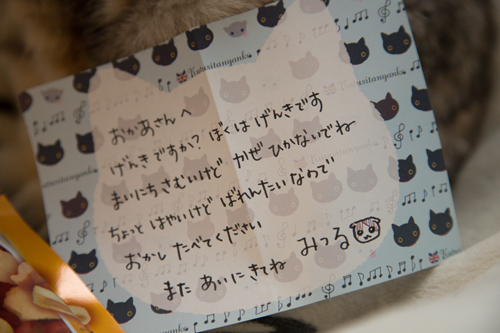 Kutusitanyanko
おかあさんへ
げんきですか？ ぼくは げんきです
まいにち さむいけど かぜ ひかないでね
ちょっと はやいけど ばれんたい なので
おかし たべてください
また あいに きてね みつる